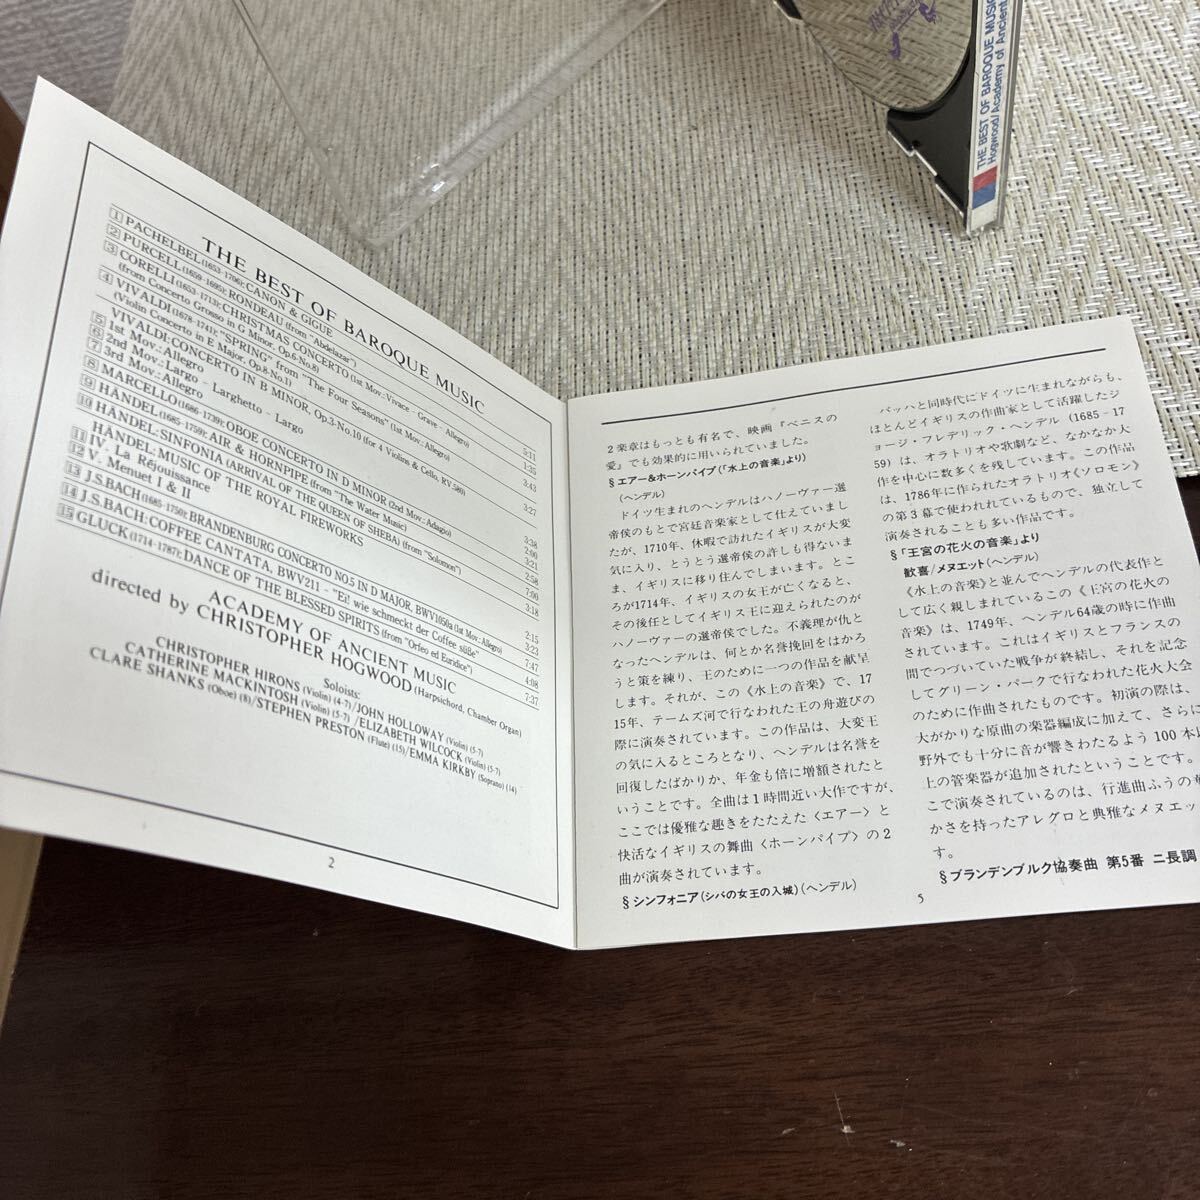 THE BEST OF BAROQUE MUSIC
Hogwood/Academy of Ancient
THE BEST OF BAROQUE MUSIC
1 PACHELBEL(1653-1706): CANON & GIGUE 5:11
2 PURCELL(1659-1695): RONDEAU (from "Abdelazar") 1:35
3 CORELLI(1653-1713): CHRISTMAS CONCERTO (1st Mov.:Vivace - Grave - Allegro)
(from Concerto Grosso in G Minor, Op.6-No.8) 3:43
4 VIVALDI(1678-1741): "SPRING" from "The Four Seasons" (1st Mov.:Allegro)
(Violin Concerto in E Major, Op.8-No.1) 3:27
VIVALDI: CONCERTO IN B MINOR, Op.3-No.10 (for 4 Violins & Cello, RV.580)
5 1st Mov.:Allegro 3:38
6 2nd Mov.:Largo - Larghetto - Largo 2:00
7 3rd Mov.:Allegro 3:21
8 MARCELLO(1686-1739): OBOE CONCERTO IN D MINOR (2nd Mov.:Adagio) 2:58
9 HÄNDEL(1685-1759): AIR & HORNPIPE (from "The Water Music) 7:00
10 HÄNDEL: SINFONIA (ARRIVAL OF THE QUEEN OF SHEBA) (from "Solomon") 3:18
HÄNDEL: MUSIC OF THE ROYAL FIREWORKS
11 IV. La Réjouissance 2:15
12 V. Menuet I & II 3:23
13 J.S.BACH(1685-1750): BRANDENBURG CONCERTO NO.5 IN D MAJOR, BWV1050a (1st Mov.:Allegro) 7:47
14 J.S.BACH: COFFEE CANTATA, BWV211 - "Ei! wie schmeckt der Coffee süße" 4:08
15 GLUCK(1714-1787): DANCE OF THE BLESSED SPIRITS (from "Orfeo ed Euridice") 7:37
ACADEMY OF ANCIENT MUSIC
directed by CHRISTOPHER HOGWOOD (Harpsichord, Chamber Organ)
Soloists:
CHRISTOPHER HIRONS (Violin) (4-7)/JOHN HOLLOWAY (Violin) (5-7)
CATHERINE MACKINTOSH (Violin) (5-7)/ELIZABETH WILCOCK (Violin) (5-7)
CLARE SHANKS (Oboe) (8)/STEPHEN PRESTON (Flute) (15)/EMMA KIRKBY (Soprano) (14)
2
2楽章はもっとも有名で、映画『ベニスの
愛』でも効果的に用いられていました。
§エアー&ホーンパイプ(「水上の音楽」より)
(ヘンデル)
ドイツ生まれのヘンデルはハノーヴァー選
帝侯のもとで宮廷音楽家として仕えていまし
たが、1710年、休暇で訪れたイギリスが大変
気に入り、とうとう選帝侯の許しも得ないま
ま、イギリスに移り住んでしまいます。とこ
ろが1714年、イギリスの女王が亡くなると、
その後任としてイギリス王に迎えられたのが
ハノーヴァーの選帝侯でした。不義理が仇と
なったヘンデルは、何とか名誉挽回をはかろ
うと策を練り、王のために一つの作品を献呈
します。それが、この《水上の音楽》で、17
15年、テームズ河で行なわれた王の舟遊びの
際に演奏されています。この作品は、大変王
の気に入るところとなり、ヘンデルは名誉を
回復したばかりか、年金も倍に増額されたと
いうことです。全曲は1時間近い大作ですが、
ここでは優雅な趣きをたたえた〈エアー〉と
快活なイギリスの舞曲〈ホーンパイプ〉の2
曲が演奏されています。
§シンフォニア(シバの女王の入城)(ヘンデル)
バッハと同時代にドイツに生まれながらも、
ほとんどイギリスの作曲家として活躍したジ
ョージ・フレデリック・ヘンデル(1685-17
59)は、オラトリオや歌劇など、なかなか大
作を中心に数多くを残しています。この作品
は、1786年に作られたオラトリオ《ソロモン》
の第3幕で使われれているもので、独立して
演奏されることも多い作品です。
§「王宮の花火の音楽」より
歓喜/メヌエット(ヘンデル)
《水上の音楽》と並んでヘンデルの代表作と
して広く親しまれているこの《王宮の花火の
音楽》は、1749年、ヘンデル64歳の時に作曲
されています。これはイギリスとフランスの
間でつづいていた戦争が終結し、それを記念
してグリーン・パークで行なわれた花火大会
のために作曲されたものです。初演の際は、
大がかりな原曲の楽器編成に加えて、さらに
野外でも十分に音が響きわたるよう100本以
上の管楽器が追加されたということです。
こで演奏されているのは、行進曲ふうの
かさを持ったアレグロと典雅なメヌエッ
す。
§ブランデンブルク協奏曲 第5番 ニ長調
5